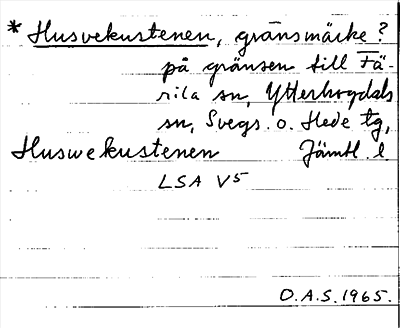 * Husvekustenen, gränsmärke?
på gränsen till Fä-
rila sn, Ytterhogdals
sn, Svegs o. Hede tg,
Huswekustenen Jämtl. l
LSA V5
O.A.S. 1965.